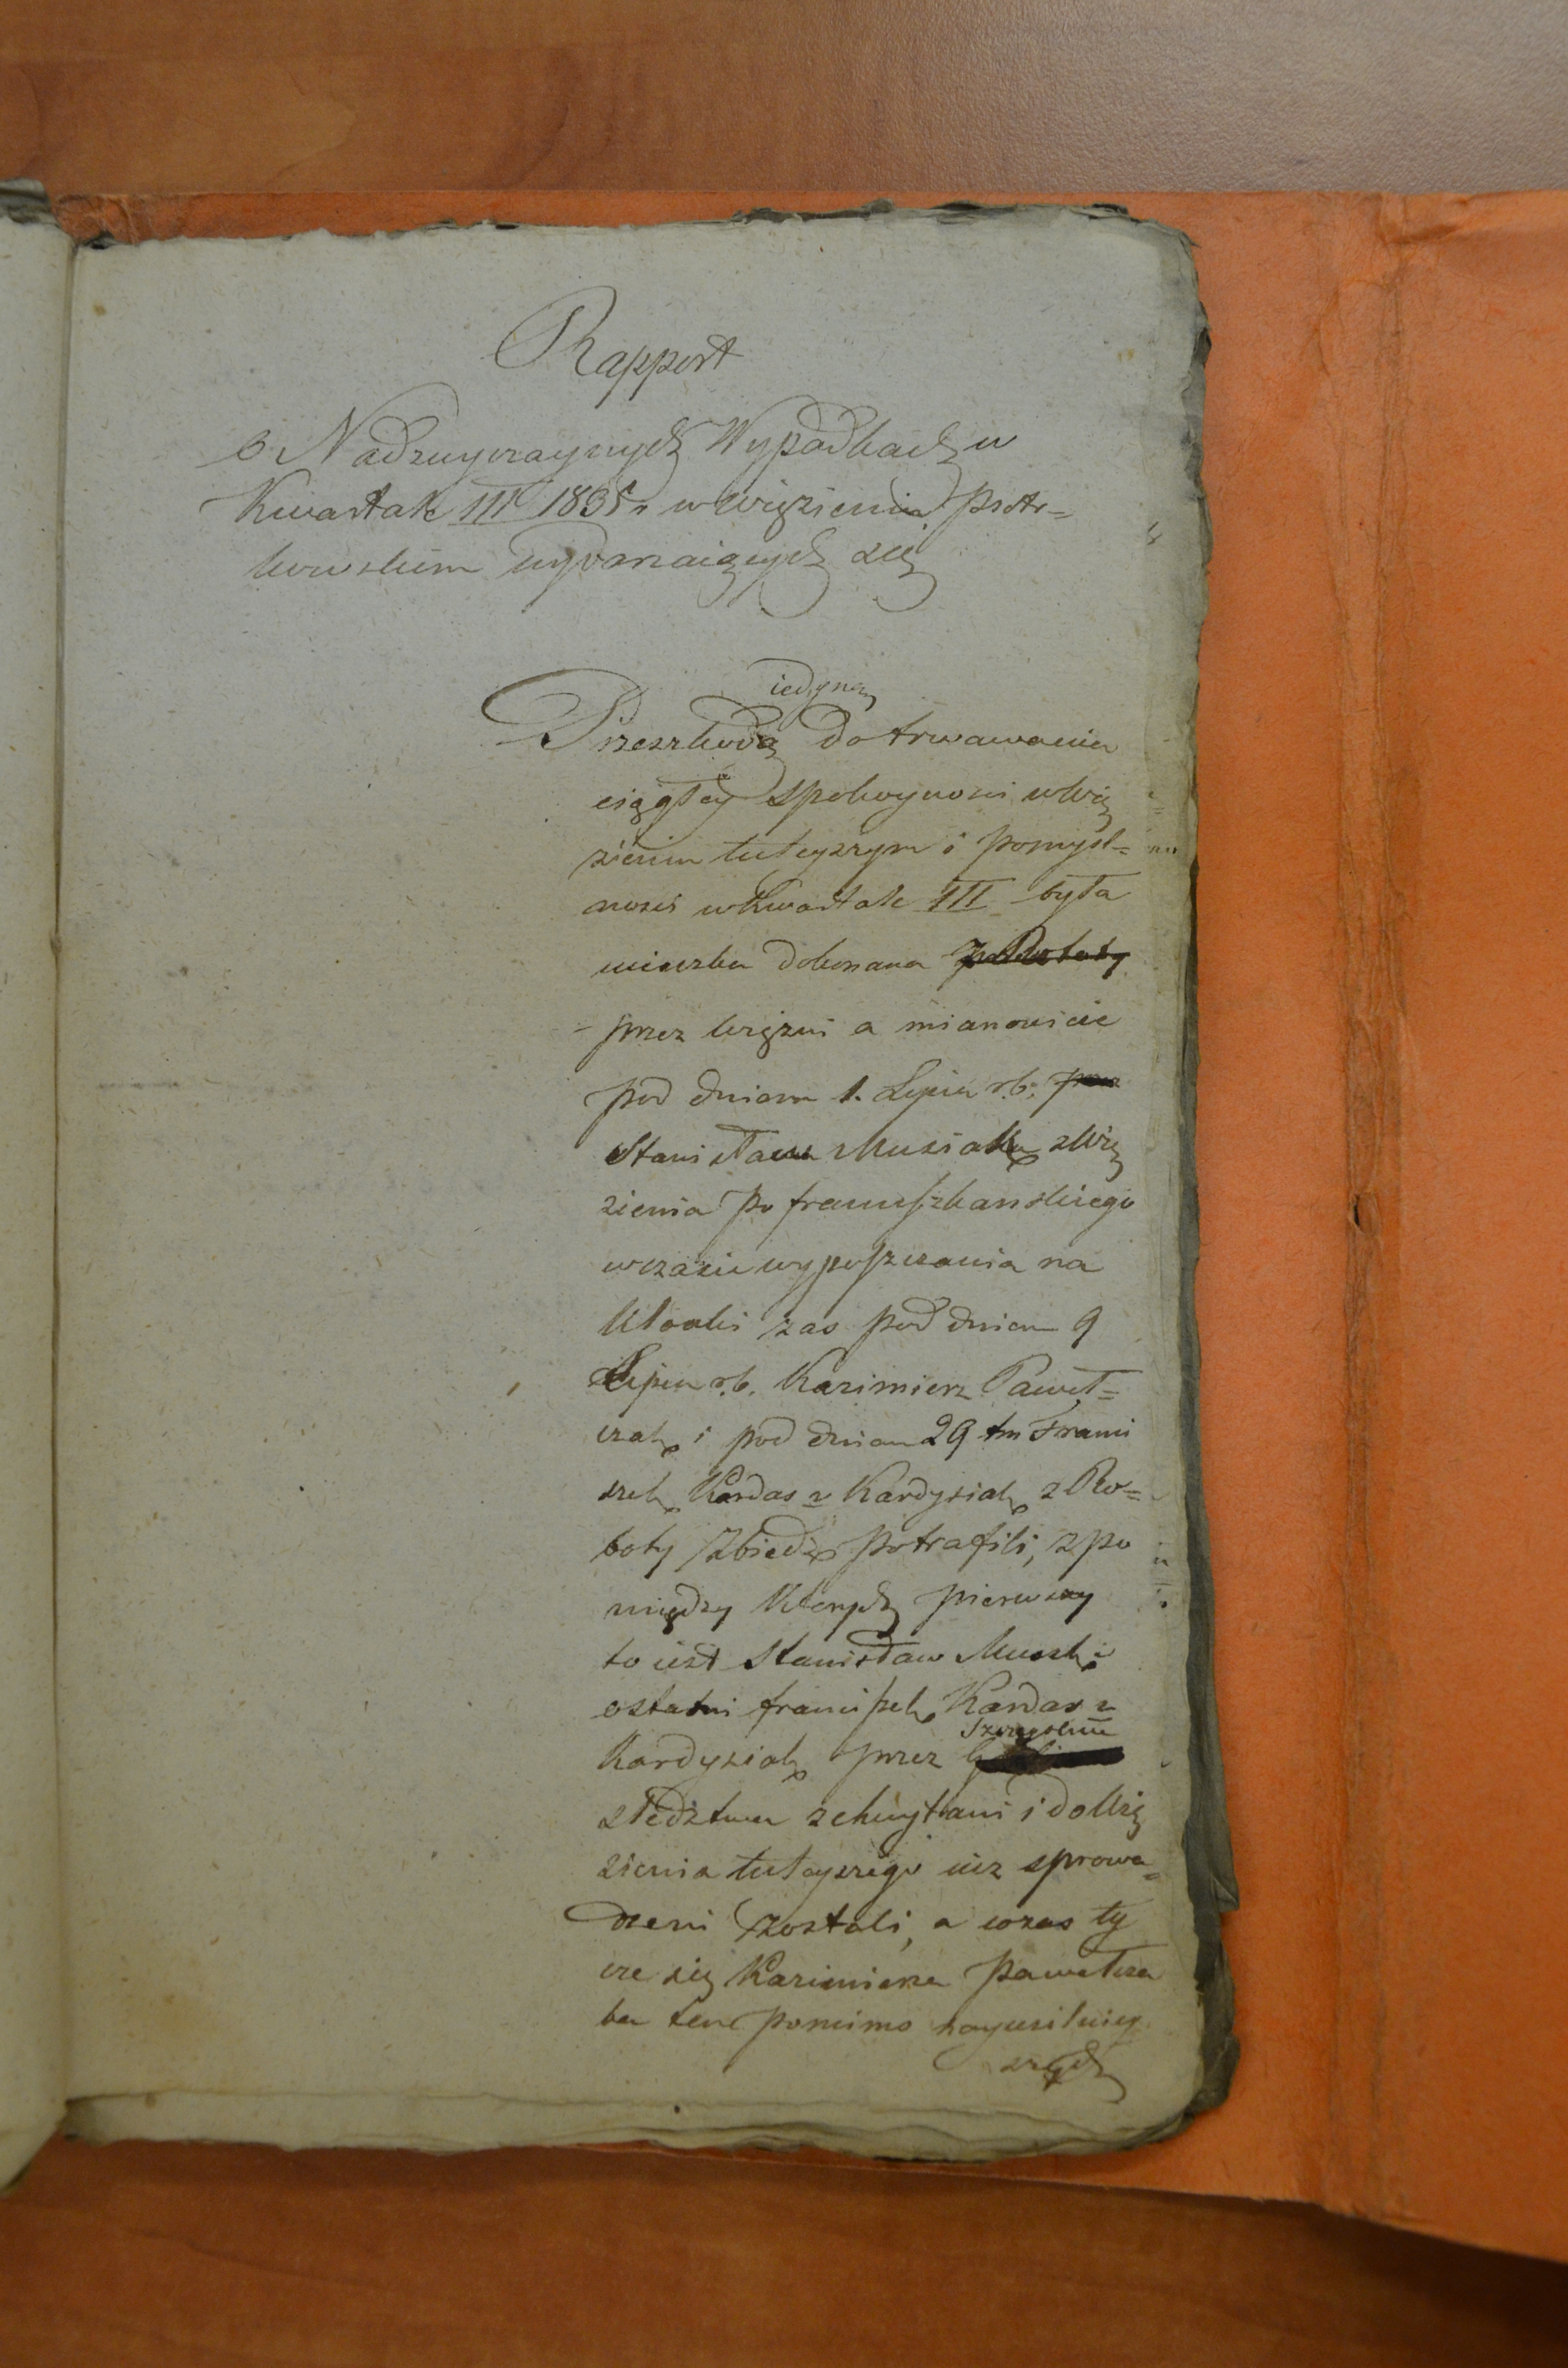 Rapport
o Nadzwyczaynych Wypadkach w
Kwartale III 1835 r. w więzieniu Piotr=
kowskiem wydarzaiących się
iedyną
Przeszkodą do trwawania
ciągłey spokoyności w Wię
zieniu tuteyszym i pomyśl=
ności w Kwartale III była
ucieczka dokonana
przez więzni a mianowicie
pod dniem 1. Lipca r.b. przez
Stanisława Musiaka z Wię
zienia po franciszkanskiego
w czasie wypuszczania na
kloaki zas pod dniem 9
Lipca r.b. Kazimierz Paweł=
czak i pod dniem 29 tm Franci
szek Kardas v Kardysiak z Ro=
boty zbiedz potrafili, z po
między których pierwszy
to iest Stanisław Musiak i
ostatni franciszek Kardas v
Szczegolnie
Kardysiak przez
sledztwa schwytani i do Wię
zienia tuteyszego iuz sprowa=
dzeni zostali, a co zas ty
cze się Kazimierza Pawełcza
ka ten pomimo nayusilniey
szych